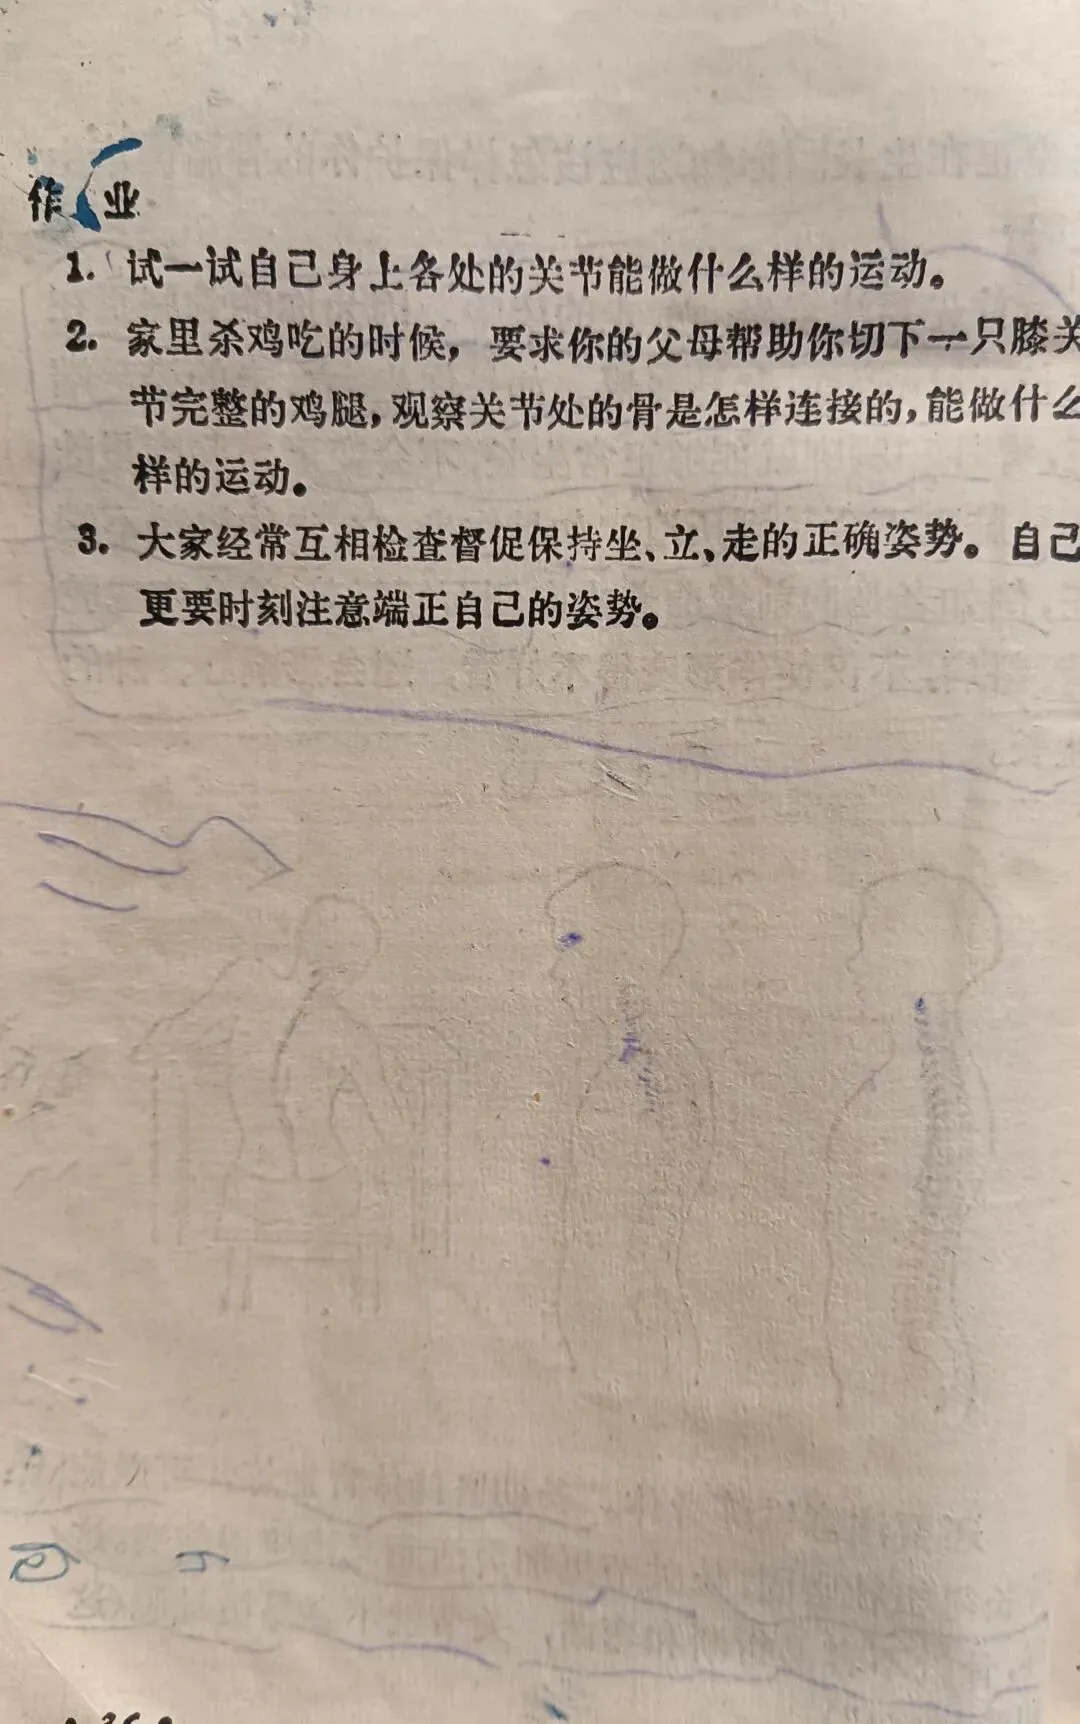 作业
1. 试一试自己身上各处的关节能做什么样的运动。
2. 家里杀鸡吃的时候，要求你的父母帮助你切下一只膝关
节完整的鸡腿，观察关节处的骨是怎样连接的，能做什么
样的运动。
3. 大家经常互相检查督促保持坐、立、走的正确姿势。自己
更要时刻注意端正自己的姿势。